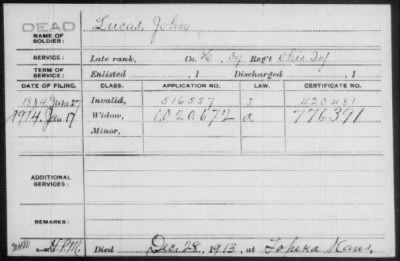 DEAD
NAME OF SOLDIER: Lucas, John
SERVICE: Late rank, Co. K, 39 Reg't Ohio Inf
TERM OF SERVICE: Enlisted , 1 Discharged , 1
DATE OF FILING. CLASS. APPLICATION NO. LAW. CERTIFICATE NO.
1884 June 27 Invalid, 516557 420481
1914 Jan 17 Widow, 1020672 a 776391
Minor,
ADDITIONAL SERVICES:
REMARKS:
Died Dec. 28, 1913, at Topeka Kans.